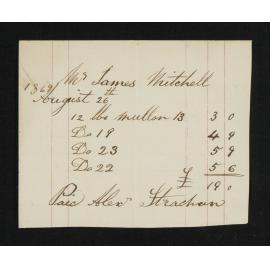 1869 Mr James Mitchell
August 26th
12 lbs mutton B 3 0
Do 19 4 9
Do 23 5 9
Do 22 5 6
£ 19 0
Paid Alexr Strachan